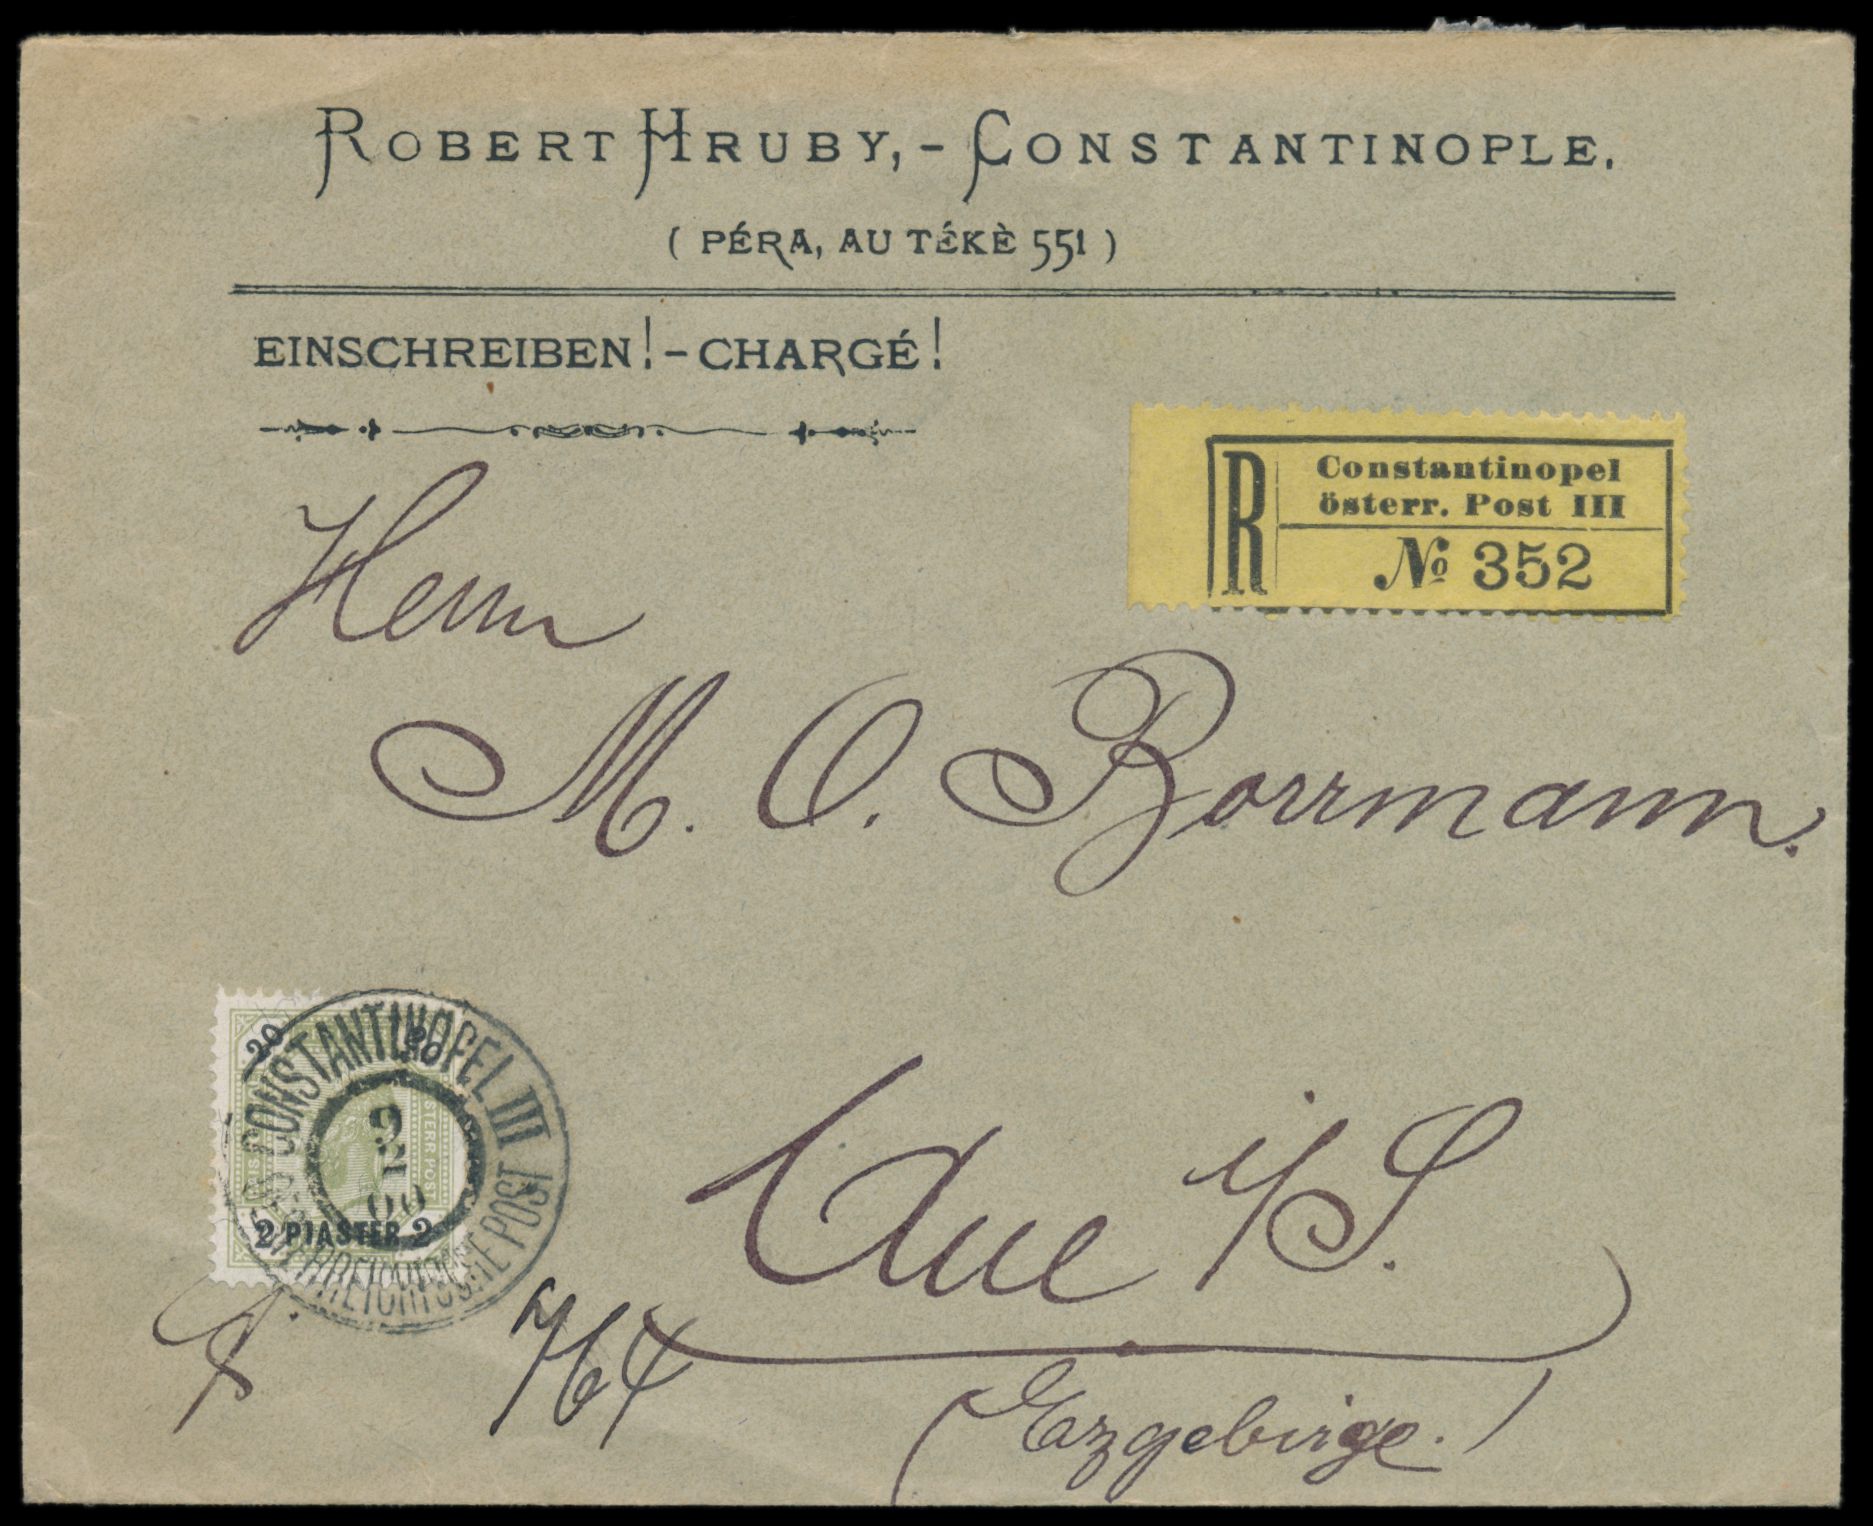 ROBERT HRUBY, - CONSTANTINOPLE.
( PÉRA, AU TÉKÈ 551 )
EINSCHREIBEN! - CHARGÉ!
R
Constantinopel
österr. Post III
No 352
Herrn
M. O. Borrmann.
20 20
CONSTANTINOPEL III
9
00
STERR POST
2 PIASTER 2
POST
Aue i/S.
764
(Erzgebirge.)